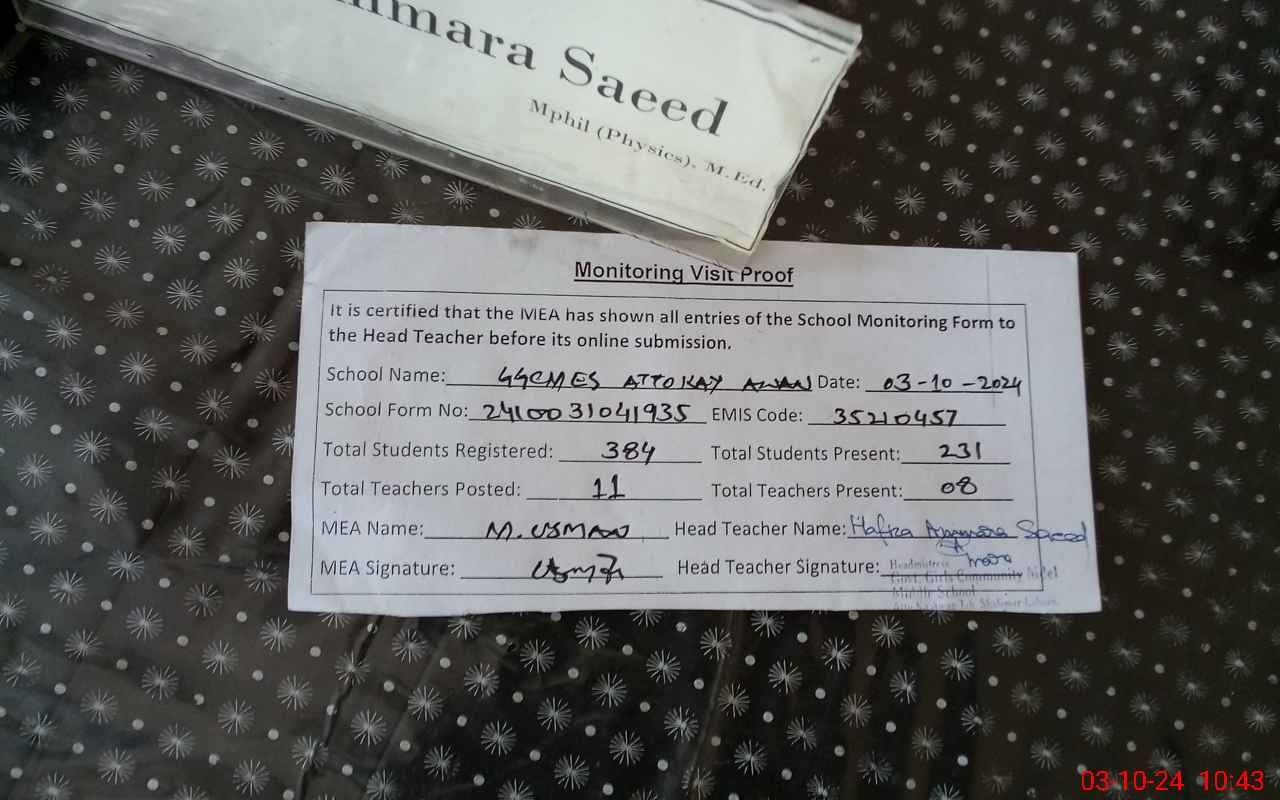 mara Saeed
Mphil (Physics). M.Ed.
Monitoring Visit Proof
It is certified that the MEA has shown all entries of the School Monitoring Form to
the Head Teacher before its online submission.
School Name: GGCMES ATTOKAY AWAN Date: 03-10-2024
School Form No: 2410031041935 EMIS Code: 35210457
Total Students Registered: 384 Total Students Present: 231
Total Teachers Posted: 11 Total Teachers Present: 08
MEA Name: M. USMAN Head Teacher Name: Hafiza Ammara Saeed
MEA Signature: Head Teacher Signature:
Headmistress
Govt. Girls Community Model
Middle School
03-10-24 10:43